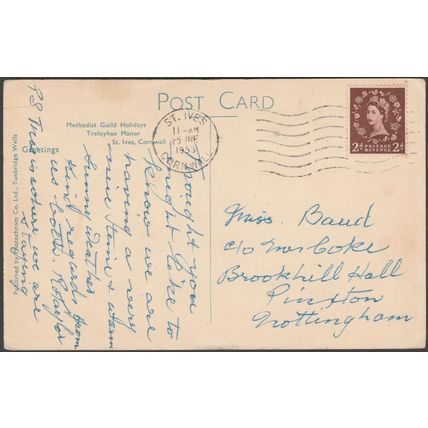 POST CARD
Methodist Guild Holidays
Treloyhan Manor
St. Ives, Cornwall
Greetings
ST. IVES
11-AM
25 JNE
1953
CORNWALL
2d POSTAGE REVENUE 2d
Thought you
might like to
know we are
having a very
nice time & warm
sunny weather
Kind regards from
us both.
PS This is where we are
staying
Miss. Baud
c/o Mrs Coke
Brookhill Hall
Pinxton
Nottingham
Published by Photochrom Co. Ltd., Tunbridge Wells